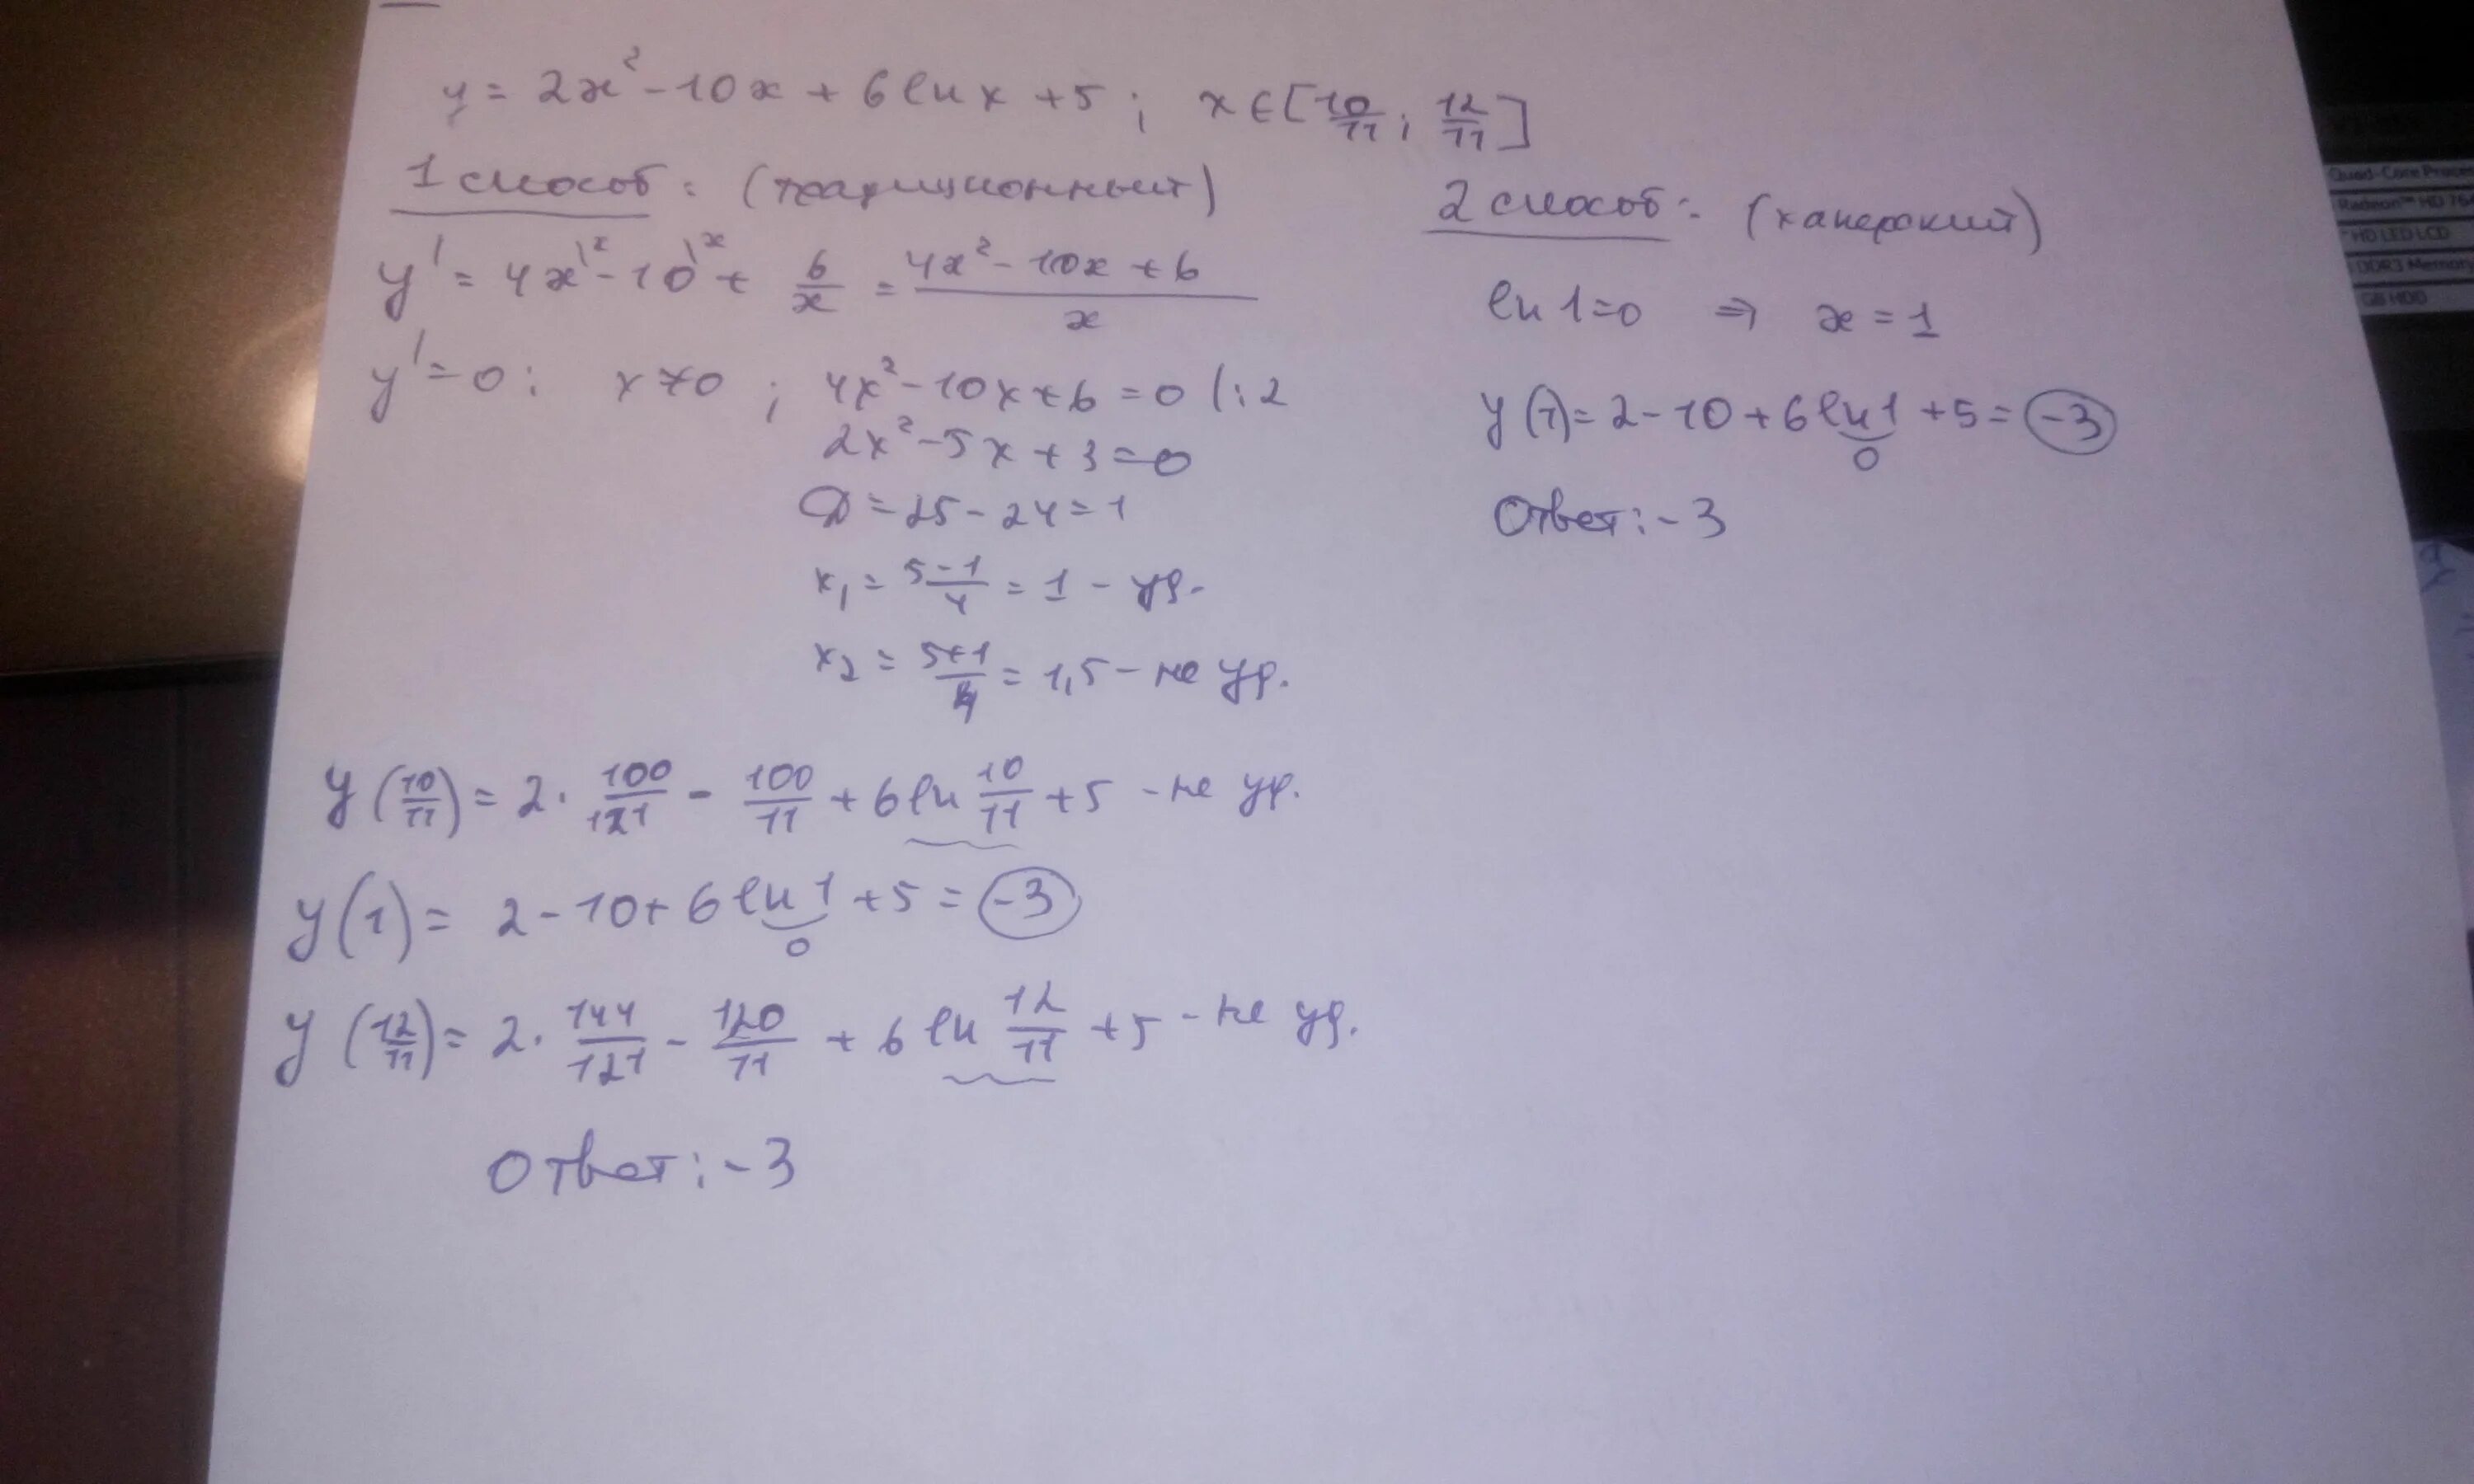 y = 2x² - 10x + 6 ln x + 5 ; x ∈ [10/11 ; 12/11]
1 способ: (традиционный)
y' = 4x - 10 + 6/x = (4x² - 10x + 6)/x
y' = 0 : x ≠ 0 ; 4x² - 10x + 6 = 0 | : 2
2x² - 5x + 3 = 0
D = 25 - 24 = 1
x₁ = (5 - 1)/4 = 1 - уд.
x₂ = (5 + 1)/4 = 1,5 - не уд.
y(10/11) = 2 · 100/121 - 100/11 + 6 ln 10/11 + 5 - не уд.
y(1) = 2 - 10 + 6 ln 1 + 5 = -3
0
y(12/11) = 2 · 144/121 - 120/11 + 6 ln 12/11 + 5 - не уд.
Ответ: -3
2 способ: (хакерский)
ln 1 = 0 ⇒ x = 1
y(1) = 2 - 10 + 6 ln 1 + 5 = -3
0
Ответ: -3
Quad-Core
Radeon™ HD 76
HD LED LCD
DDR3 Memory
GB HDD